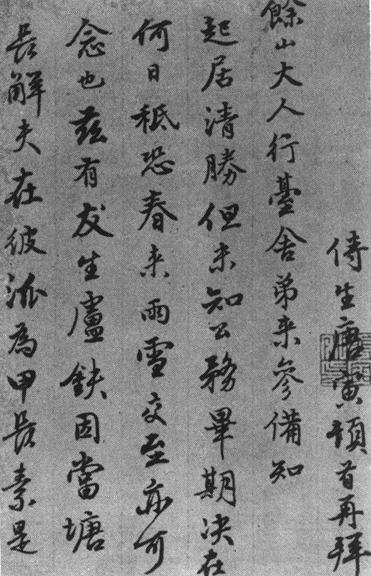 侍生唐寅頓首再拜
餘山大人行臺舍弟來參備知
起居清勝但未知公務畢期決在
何日秪恐春來雨雪交至亦可
念也茲有友生盧鈇因當塘
長解夫在彼派為甲長素是